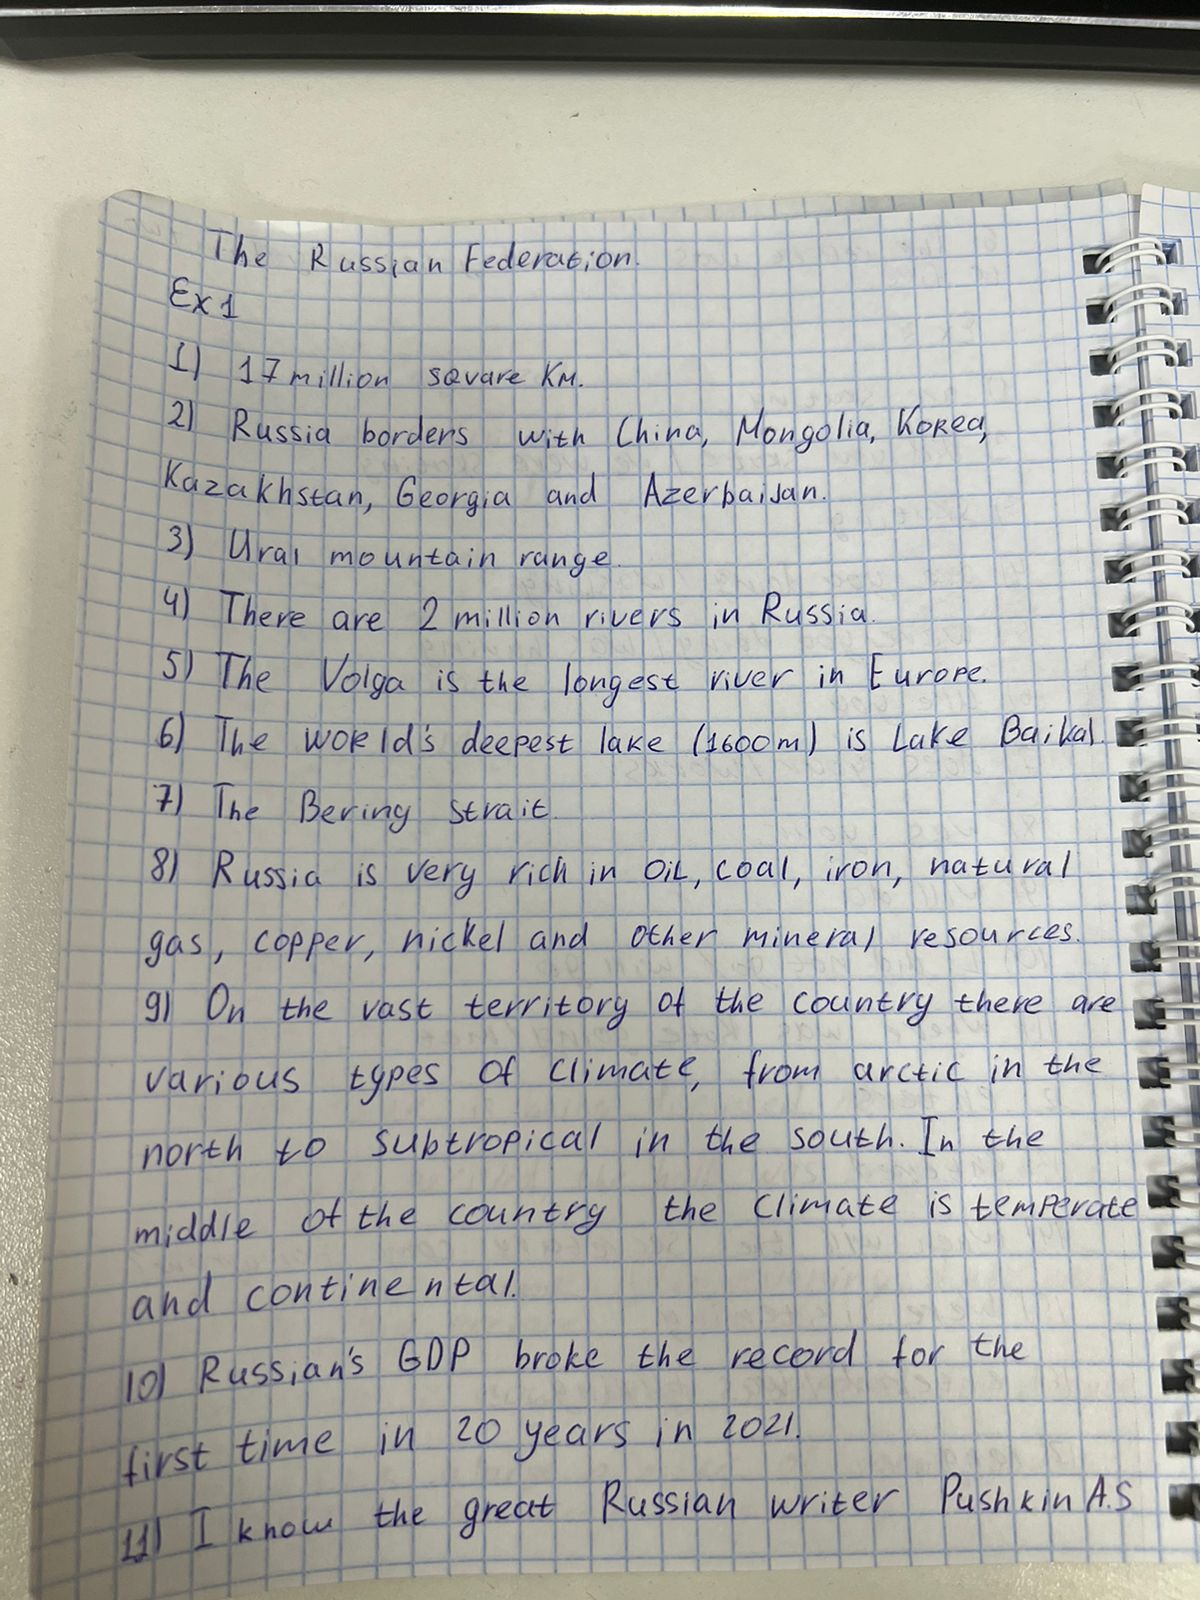 The Russian Federation.
Ex 1
1) 17 million square km.
2) Russia borders with China, Mongolia, Korea,
Kazakhstan, Georgia and Azerbaijan.
3) Ural mountain range.
4) There are 2 million rivers in Russia.
5) The Volga is the longest river in Europe.
6) The world's deepest lake (1600m) is Lake Baikal.
7) The Bering strait.
8) Russia is very rich in oil, coal, iron, natural
gas, copper, nickel and other mineral resources.
9) On the vast territory of the country there are
various types of climate, from arctic in the
north to subtropical in the south. In the
middle of the country the climate is temperate
and continental.
10) Russian's GDP broke the record for the
first time in 20 years in 2021.
11) I know the great Russian writer Pushkin A.S